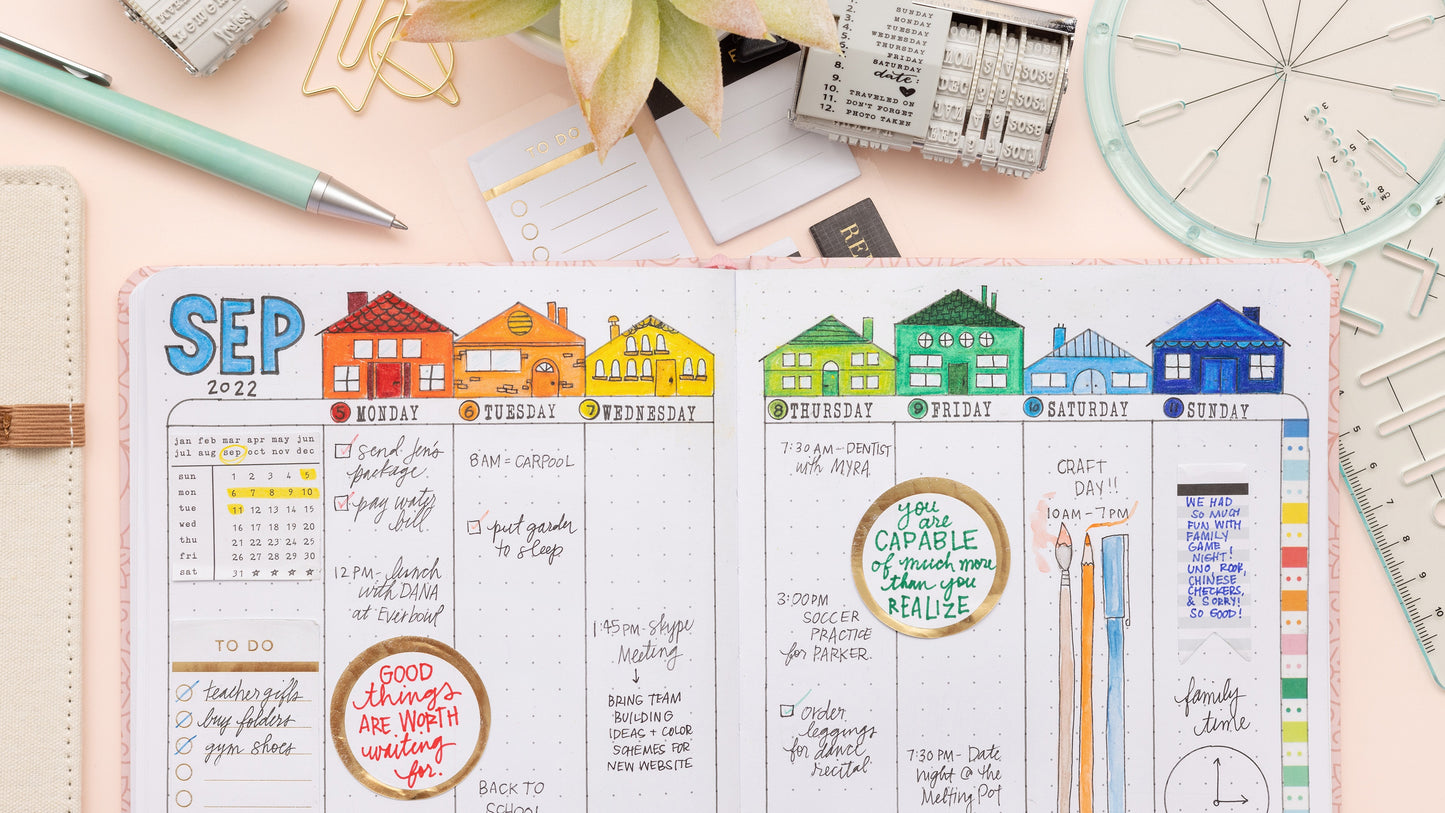 SUNDAY
MONDAY
TUESDAY
WEDNESDAY
THURSDAY
FRIDAY
SATURDAY
8.
9. date:
10. TRAVELED ON
11. DON'T FORGET
12. PHOTO TAKEN
TO DO
SEP
2022
5 MONDAY
6 TUESDAY
7 WEDNESDAY
8 THURSDAY
9 FRIDAY
10 SATURDAY
11 SUNDAY
jan feb mar apr may jun
jul aug sep oct nov dec
sun 1 2 3 4 5
mon 6 7 8 9 10
tue 11 12 13 14 15
wed 16 17 18 19 20
thu 21 22 23 24 25
fri 26 27 28 29 30
sat 31
TO DO
teacher gifts
buy folders
gym shoes
send Jen's
package.
pay water
bill.
12 PM- lunch
with DANA
at Everbowl
GOOD
things
ARE WORTH
waiting
for.
8AM = CARPOOL
put garden
to sleep
BACK TO
SCHOOL
1:45 PM- Skype
Meeting
BRING TEAM
BUILDING
IDEAS + COLOR
SCHEMES FOR
NEW WEBSITE
7:30 AM- DENTIST
with MYRA
3:00PM
SOCCER
PRACTICE
for PARKER.
order
leggings
for dance
recital
you
are
CAPABLE
of much more
than you
REALIZE
7:30 PM- Date
night @ the
Melting Pot
CRAFT
DAY!!
10AM-7PM
WE HAD
SO MUCH
FUN WITH
FAMILY
GAME
NIGHT!
UNO, ROOK,
CHINESE
CHECKERS,
& SORRY!
SO GOOD!
family
time